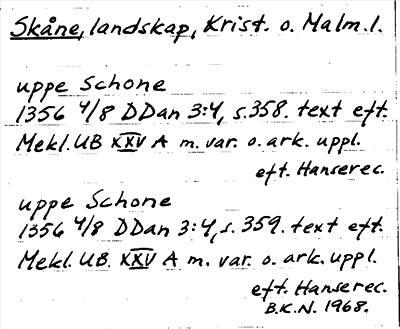 Skåne, landskap, Krist. o. Malm. l.
uppe Schone
1356 4/8 DDan 3:4, s. 358. text eft.
Mekl. UB XXV A m. var. o. ark. uppl.
eft. Hanserec.
uppe Schone
1356 4/8 DDan 3:4, s. 359. text eft.
Mekl. UB XXV A m. var. o. ark. uppl.
eft. Hanserec.
B.K.N. 1968.